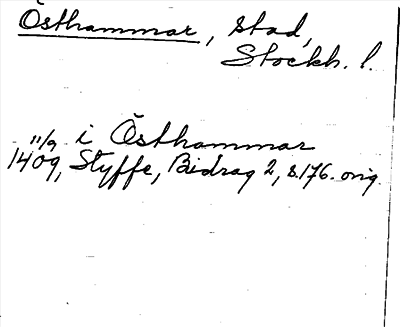 Östhammar, stad,
Stockh. l.
11/9 i Östhammar
1409, Styffe, Bidrag 2, s. 176. orig.